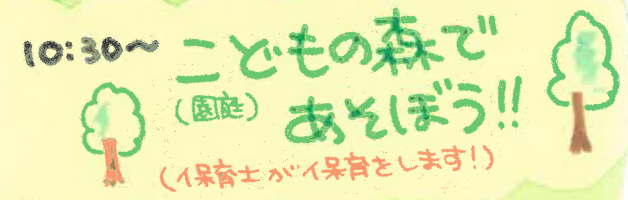 10:30~ こどもの森で
(園庭) あそぼう!!
(保育士が保育をします!)